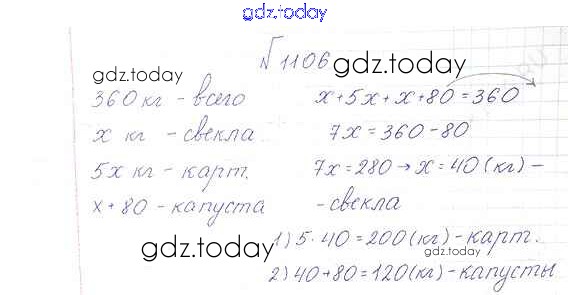 gdz.today
№ 1106
gdz.today gdz.today
360 кг - всего x+5x+x+80=360
x кг - свекла 7x=360-80
5x кг - карт. 7x=280→x=40(кг)-
x+80 - капуста -свекла
gdz.today gdz.today
1) 5·40=200(кг)-карт.
2) 40+80=120(кг)-капусты